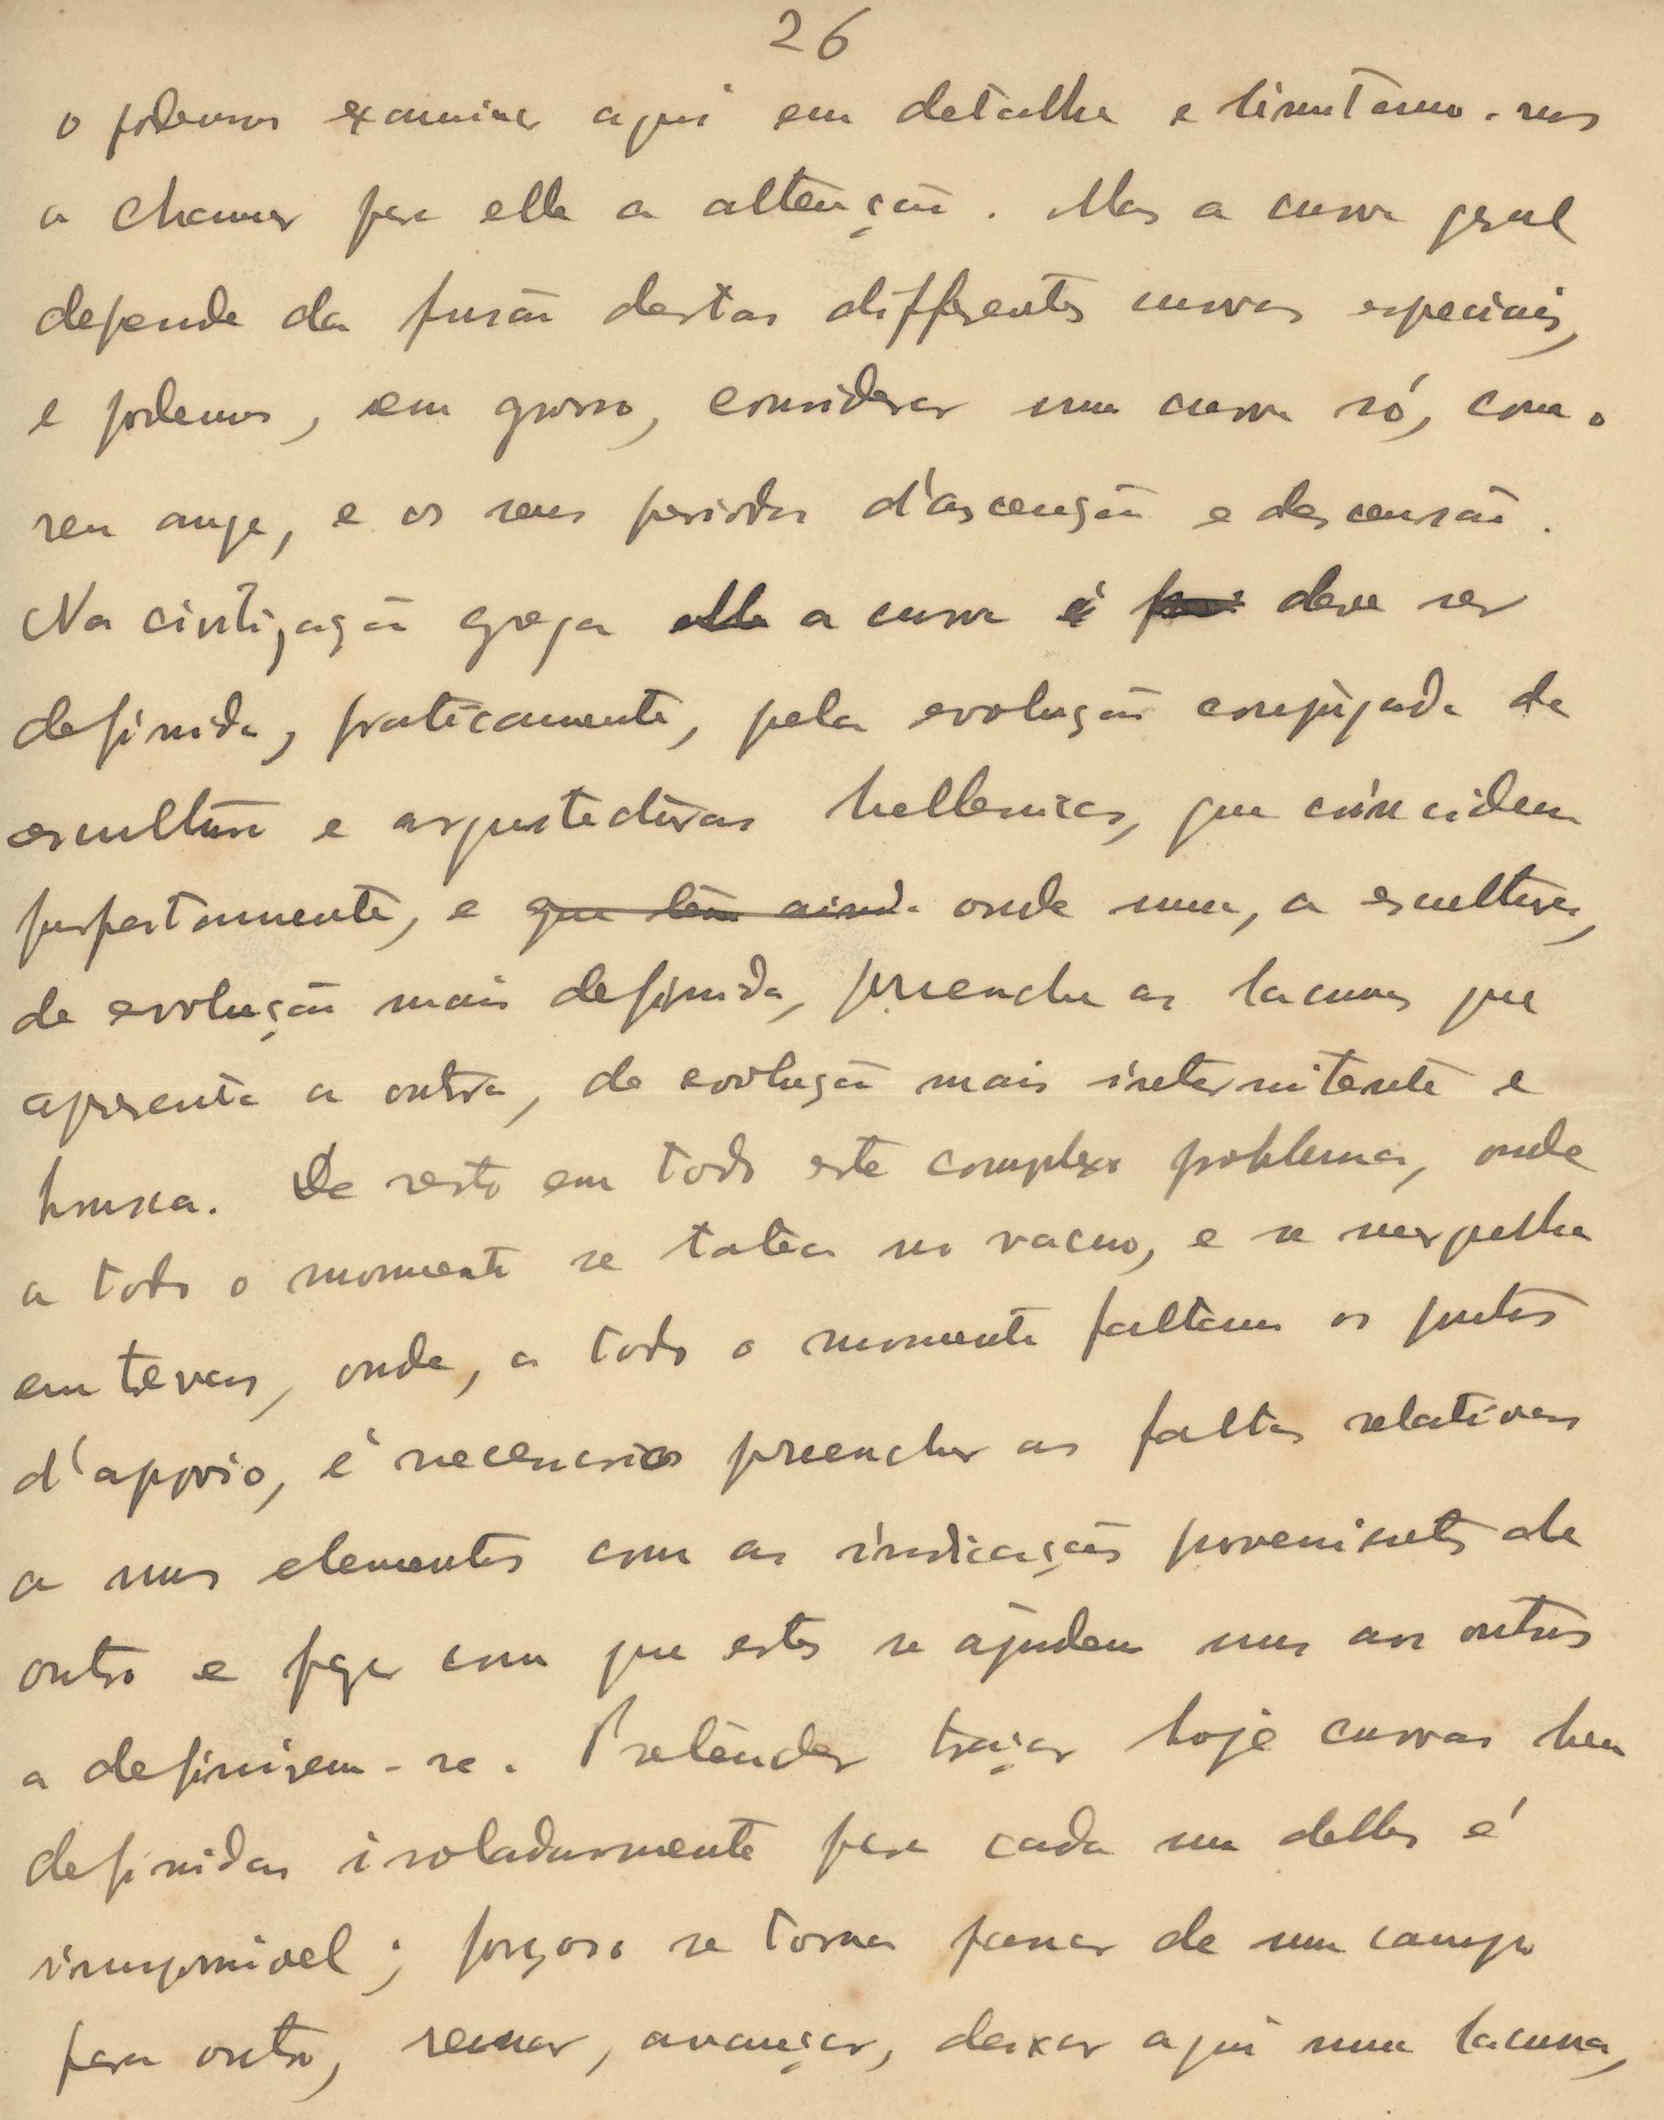 26
o podemos examinar aqui em detalhe e limitamo-nos
a chamar para elle a attenção. Mas a curva geral
depende da fusão destas differentes curvas especiais,
e podemos, em grosso, considerar uma curva só, com o
seu auge, e os seus periodos d'ascenção e descensão.
Na civilização grega ella a curva é foi deve ser
definida, praticamente, pela evolução conjugada da
escultura e arquitecturas hellenicas, que coincidem
perfeitamente, e que têm ainda onde uma, a escultura,
de evolução mais definida, preenche as lacunas que
apresenta a outra, de evolução mais intermitente e
brusca. De resto em todo este complexo problema, onde
a todo o momento se tatea no vacuo, e se mergulha
em trevas, onde, a todo o momento faltam os pontos
d'appoio, é necessario preencher as faltas relativas
a uns elementos com as indicações provenientes de
outro e fazer com que estes se ajudem uns aos outros
a definirem-se. Pretender traçar hoje curvas bem
definidas isoladamente para cada um delles é
impossivel; forçoso se torna passar de um campo
para outro, recuar, avançar, deixar aqui uma lacuna,